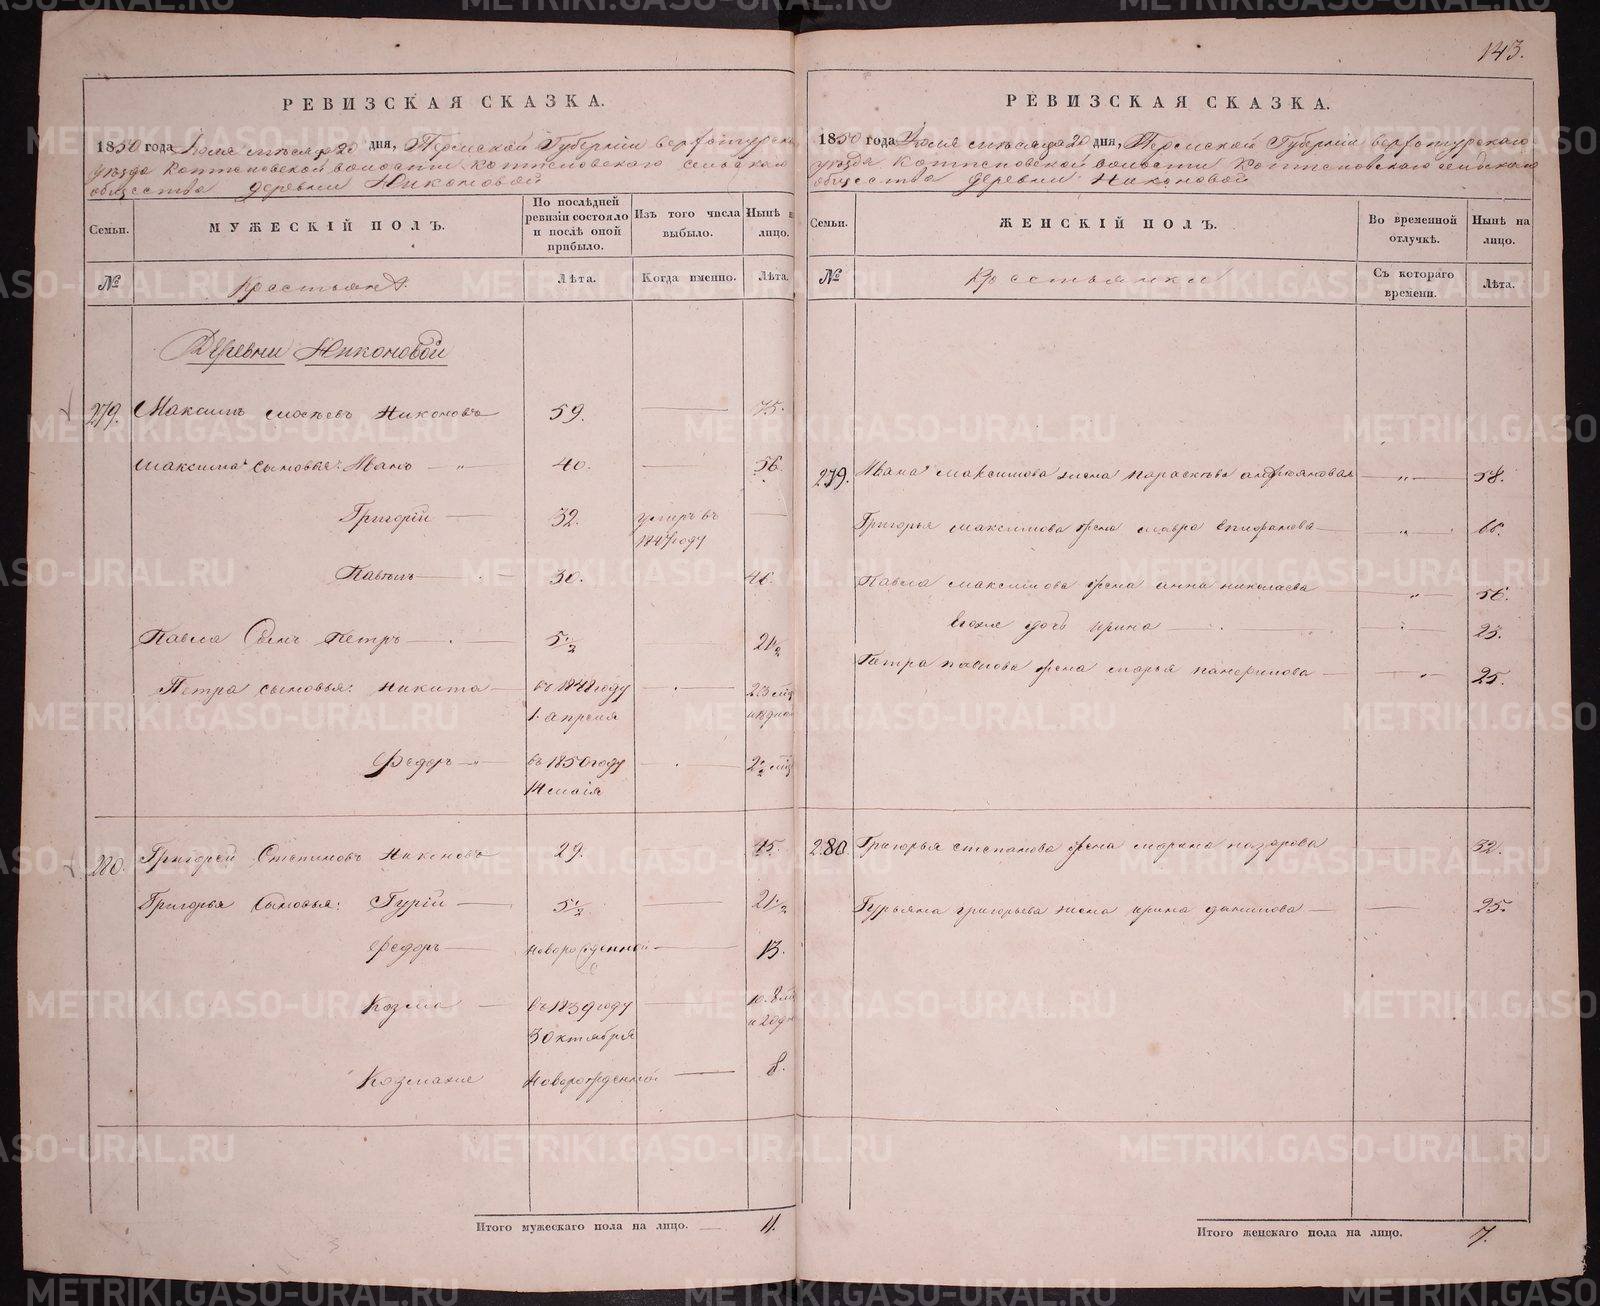 143.
РЕВИЗСКАЯ СКАЗКА.
1850 года Іюля мѣсяца 20 дня, Пермской Губерніи верхотурскаго
уѣзда Коптеловской волости Коптеловскаго сельскаго
общества деревни Никоновой
Семьи.
МУЖЕСКІЙ ПОЛЪ.
По послѣдней ревизіи состояло и послѣ оной прибыло.
Изъ того числа выбыло.
Нынѣ на лицо.
№
Крестьянъ.
Лѣта.
Когда именно.
Лѣта.
Деревни Никоновой
279. Максимъ Никоновъ 59. 75.
Максима сыновья: Иванъ 40. 56.
Григорій 32. умеръ въ
1847 году
Павелъ 30. 46.
Павла Сынъ Петръ 5 1/2 21 1/2
Петра сыновья: Никита въ 1848 году
1. апреля
Федоръ въ 1850 году 2 1/2
14 маія
280. Григорей Степановъ Никоновъ 29. 45.
Григорья Сыновья: Гурій 5 1/2 21 1/2
Федоръ новорожденной 13.
Козма въ 1839 году
30 октября
новорожденной 8.
Итого мужескаго пола на лицо. 11.
РЕВИЗСКАЯ СКАЗКА.
1850 года Іюля мѣсяца 20 дня, Пермской Губерніи верхотурскаго
уѣзда Коптеловской волости Коптеловскаго сельскаго
общества деревни Никоновой
Семьи.
ЖЕНСКІЙ ПОЛЪ.
Во временной отлучкѣ.
Нынѣ на лицо.
№
Крестьянки
Съ котораго времени.
Лѣта.
279. Ивана Максимова жена Параскѣва андреяновая " 58.
Григорья максимова жена мавра епифанова "
Павла максимова жена анна николаева " 56.
дочь ирина " 25.
Петра павлова жена марья " 25.
280. Григорья степанова жена марина назарова 32.
Гурьяна григорьева жена ирина данилова 25.
Итого женскаго пола на лицо. 7.
METRIKI.GASO-URAL.RU